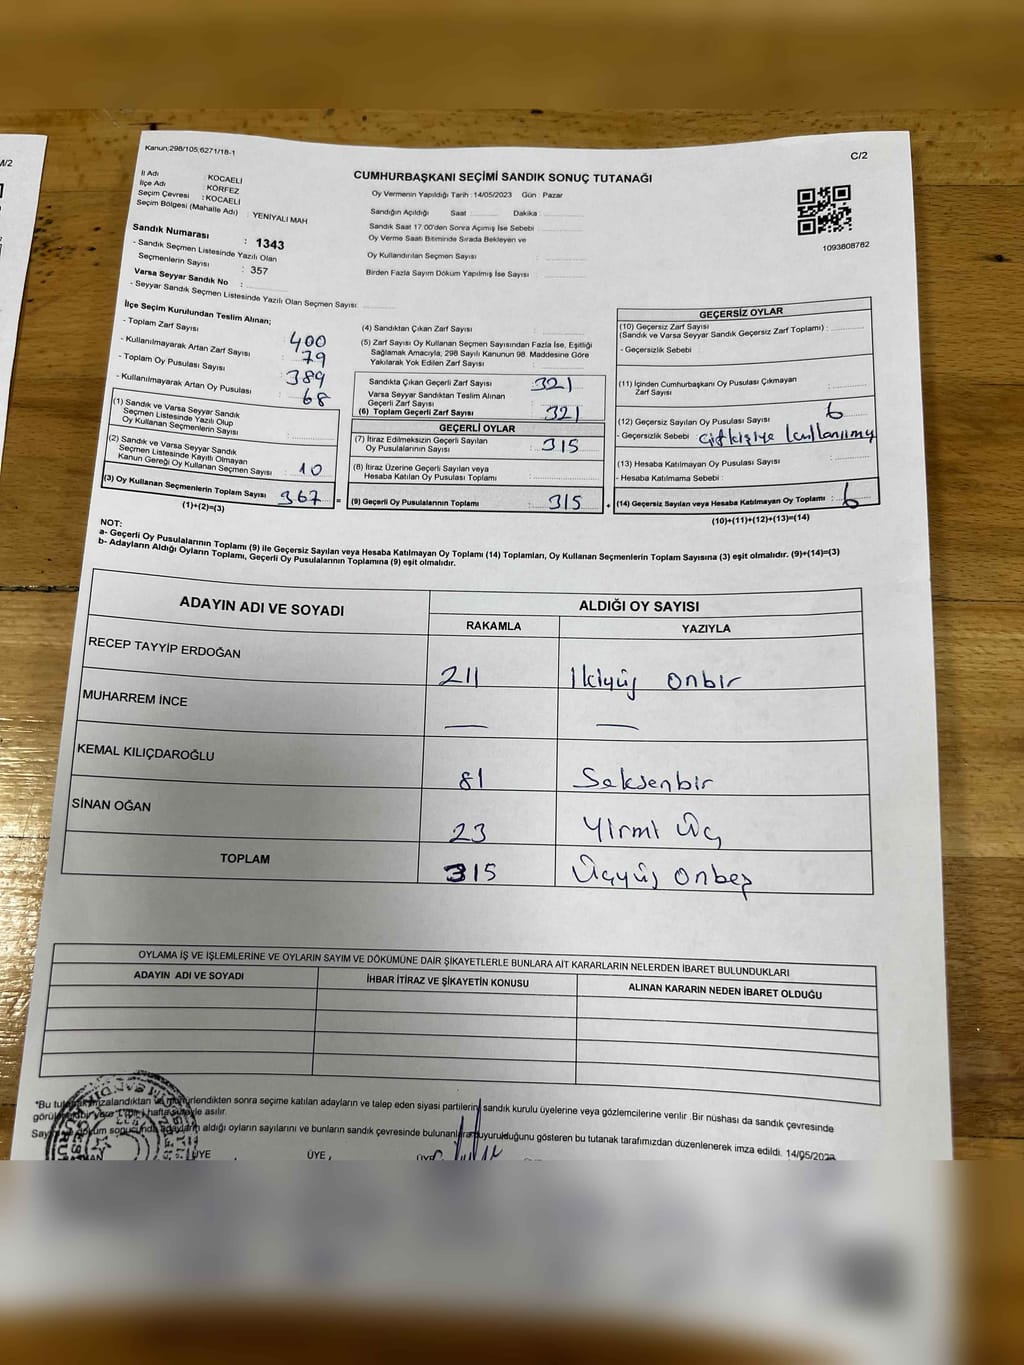 Kanun;298/105,6271/18-1
C/2
İl Adı : KOCAELİ
İlçe Adı : KÖRFEZ
Seçim Çevresi : KOCAELİ
Seçim Bölgesi (Mahalle Adı) : YENİYALI MAH
Sandık Numarası : 1343
- Sandık Seçmen Listesinde Yazılı Olan
Seçmenlerin Sayısı : 357
Varsa Seyyar Sandık No :
- Seyyar Sandık Seçmen Listesinde Yazılı Olan Seçmen Sayısı:
CUMHURBAŞKANI SEÇİMİ SANDIK SONUÇ TUTANAĞI
Oy Vermenin Yapıldığı Tarih : 14/05/2023 Gün : Pazar
Sandığın Açıldığı Saat Dakika :
Sandık Saat 17.00'den Sonra Açımış İse Sebebi
Oy Verme Saati Bitiminde Sırada Bekleyen ve
Oy Kullandırılan Seçmen Sayısı
Birden Fazla Sayım Döküm Yapılmış İse Sayısı :
1093808782
İlçe Seçim Kurulundan Teslim Alınan;
- Toplam Zarf Sayısı : 400
- Kullanılmayarak Artan Zarf Sayısı : 79
- Toplam Oy Pusulası Sayısı : 389
- Kullanılmayarak Artan Oy Pusulası : 68
(1) Sandık ve Varsa Seyyar Sandık
Seçmen Listesinde Yazılı Olup
Oy Kullanan Seçmenlerin Sayısı :
(2) Sandık ve Varsa Seyyar Sandık
Seçmen Listesinde Kayıtlı Olmayan
Kanun Gereği Oy Kullanan Seçmen Sayısı : 10
(3) Oy Kullanan Seçmenlerin Toplam Sayısı 367 =
(1)+(2)=(3)
(4) Sandıktan Çıkan Zarf Sayısı
(5) Zarf Sayısı Oy Kullanan Seçmen Sayısından Fazla İse, Eşitliği
Sağlamak Amacıyla; 298 Sayılı Kanunun 98. Maddesine Göre
Yakılarak Yok Edilen Zarf Sayısı :
Sandıkta Çıkan Geçerli Zarf Sayısı 321
Varsa Seyyar Sandıktan Teslim Alınan
Geçerli Zarf Sayısı
(6) Toplam Geçerli Zarf Sayısı 321
GEÇERLİ OYLAR
(7) İtiraz Edilmeksizin Geçerli Sayılan
Oy Pusulalarının Sayısı : 315
(8) İtiraz Üzerine Geçerli Sayılan veya
Hesaba Katılan Oy Pusulası Toplamı :
(9) Geçerli Oy Pusulalarının Toplamı : 315 +
GEÇERSİZ OYLAR
(10) Geçersiz Zarf Sayısı
(Sandık ve Varsa Seyyar Sandık Geçersiz Zarf Toplamı) :
- Geçersizlik Sebebi
(11) İçinden Cumhurbaşkanı Oy Pusulası Çıkmayan
Zarf Sayısı :
(12) Geçersiz Sayılan Oy Pusulası Sayısı 6
- Geçersizlik Sebebi : çift kişiye kullanılmış
(13) Hesaba Katılmayan Oy Pusulası Sayısı :
- Hesaba Katılmama Sebebi :
(14) Geçersiz Sayılan veya Hesaba Katılmayan Oy Toplamı : 6
(10)+(11)+(12)+(13)=(14)
NOT:
a- Geçerli Oy Pusulalarının Toplamı (9) ile Geçersiz Sayılan veya Hesaba Katılmayan Oy Toplamı (14) Toplamları, Oy Kullanan Seçmenlerin Toplam Sayısına (3) eşit olmalıdır. (9)+(14)=(3)
b- Adayların Aldığı Oyların Toplamı, Geçerli Oy Pusulalarının Toplamına (9) eşit olmalıdır.
ADAYIN ADI VE SOYADI
ALDIĞI OY SAYISI
RAKAMLA YAZIYLA
RECEP TAYYİP ERDOĞAN 211 İkiyüz onbir
MUHARREM İNCE — —
KEMAL KILIÇDAROĞLU 81 Seksenbir
SİNAN OĞAN 23 Yirmi Üç
TOPLAM 315 Üçyüz onbeş
OYLAMA İŞ VE İŞLEMLERİNE VE OYLARIN SAYIM VE DÖKÜMÜNE DAİR ŞİKAYETLERLE BUNLARA AİT KARARLARIN NELERDEN İBARET BULUNDUKLARI
ADAYIN ADI VE SOYADI İHBAR İTİRAZ VE ŞİKAYETİN KONUSU ALINAN KARARIN NEDEN İBARET OLDUĞU
*Bu düzenlendikten sonra seçime katılan adayların ve talep eden siyasi partilerin sandık kurulu üyelerine veya gözlemcilerine verilir .Bir nüshası da sandık çevresinde
hafta süreyle asılır.
aldığı oyların sayılarını ve bunların sandık çevresinde bulunanlara duyurulduğunu gösteren bu tutanak tarafımızdan düzenlenerek imza edildi. 14/05/2023
ÜYE ÜYE ÜYE